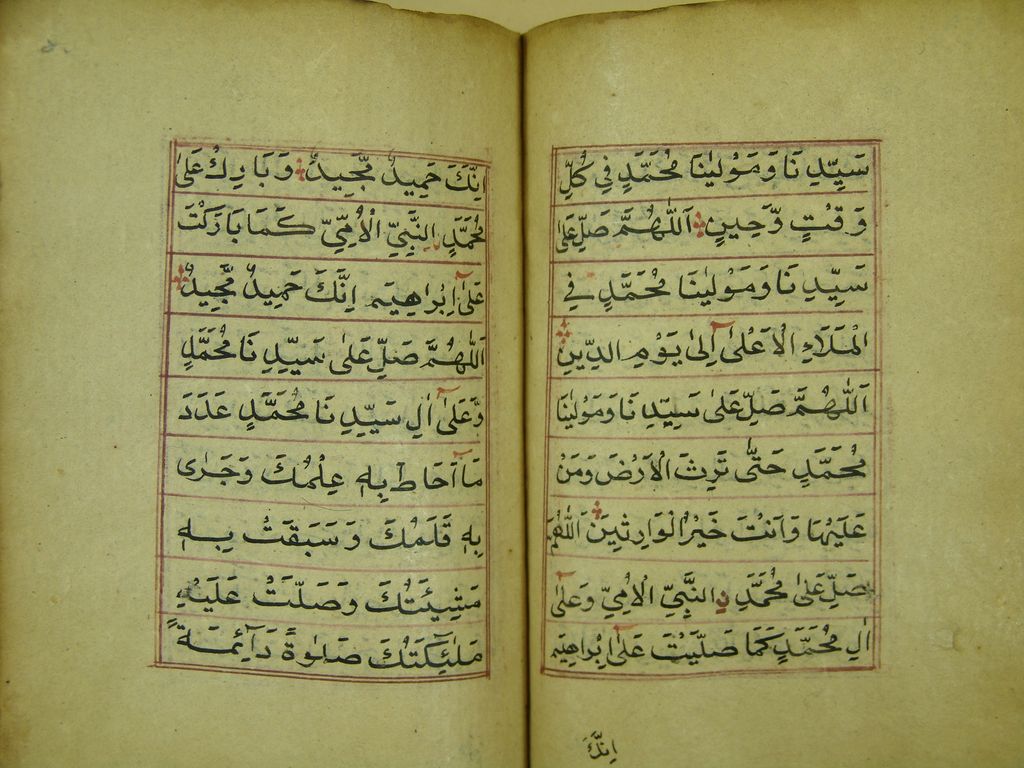 سَيِّدِنَا وَمَوْلٰينَا مُحَمَّدٍ فِي كُلِّ
وَقْتٍ وَّحِينٍ اَللّٰهُمَّ صَلِّ عَلٰى
سَيِّدِنَا وَمَوْلٰينَا مُحَمَّدٍ فِي
الْمَلَاءِ الْاَعْلٰى اِلٰى يَوْمِ الدِّينِ
اَللّٰهُمَّ صَلِّ عَلٰى سَيِّدِنَا وَمَوْلٰينَا
مُحَمَّدٍ حَتّٰى تَرِثَ الْاَرْضَ وَمَنْ
عَلَيْهَا وَاَنْتَ خَيْرُ الْوَارِثِينَ اَللّٰهُمَّ
صَلِّ عَلٰى مُحَمَّدِ نِ النَّبِيِّ الْاُمِّيِّ وَعَلٰى
اٰلِ مُحَمَّدٍ كَمَا صَلَّيْتَ عَلٰى اِبْرَاهِيمَ
اِنَّكَ
اِنَّكَ حَمِيدٌ مَّجِيدٌ وَبَارِكْ عَلٰى
مُحَمَّدِ نِ النَّبِيِّ الْاُمِّيِّ كَمَا بَارَكْتَ
عَلٰى اِبْرَاهِيمَ اِنَّكَ حَمِيدٌ مَّجِيدٌ
اَللّٰهُمَّ صَلِّ عَلٰى سَيِّدِنَا مُحَمَّدٍ
وَّعَلٰى اٰلِ سَيِّدِنَا مُحَمَّدٍ عَدَدَ
مَا اَحَاطَ بِهٖ عِلْمُكَ وَجَرٰى
بِهٖ قَلَمُكَ وَسَبَقَتْ بِهٖ
مَشِيئَتُكَ وَصَلَّتْ عَلَيْهِ
مَلٰئِكَتُكَ صَلٰوةً دَائِمَةً